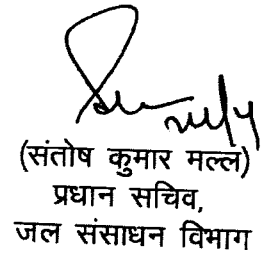 (संतोष कुमार मल्ल)
प्रधान सचिव,
जल संसाधन विभाग